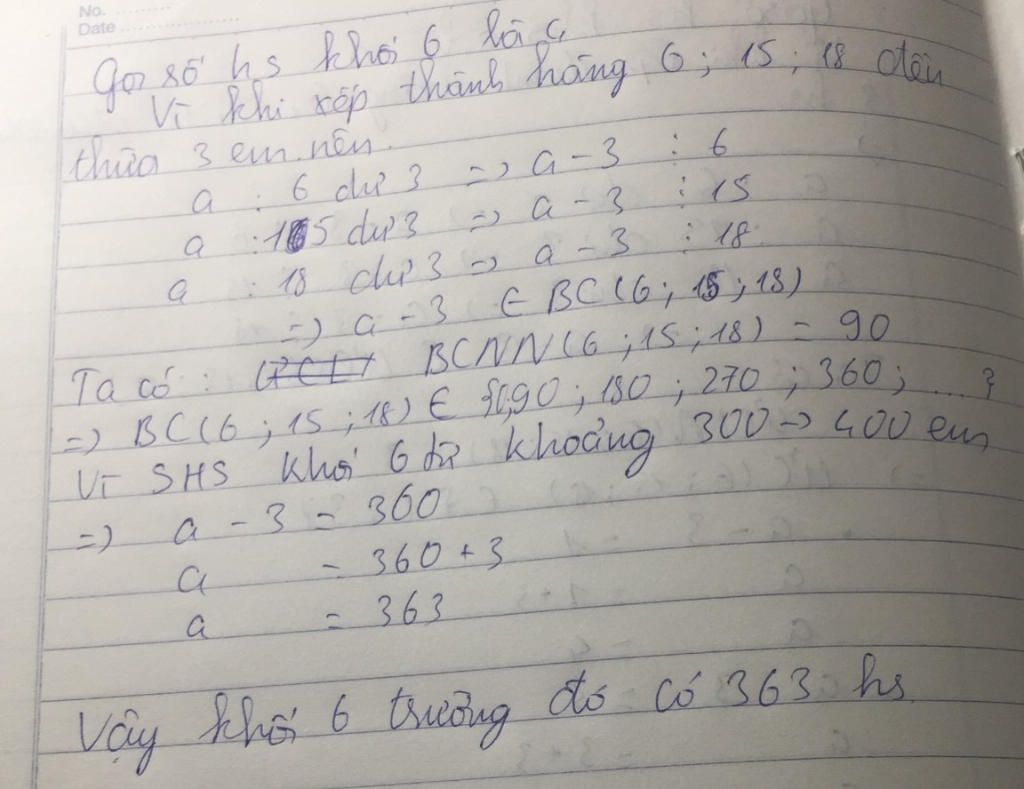 No. ............
Date ..................
Gọi số hs khối 6 là a
Vì khi xếp thành hàng 6 ; 15 ; 18 đều
thừa 3 em nên.
a : 6 dư 3 => a - 3 ⋮ 6
a : 15 dư 3 => a - 3 ⋮ 15
a : 18 dư 3 => a - 3 ⋮ 18
=> a - 3 ∈ BC(6 ; 15 ; 18)
Ta có : BCNN(6 ; 15 ; 18) = 90
=> BC(6 ; 15 ; 18) ∈ {0;90 ; 180 ; 270 ; 360 ; ... }
Vì SHS khối 6 từ khoảng 300 -> 400 em
=> a - 3 = 360
a = 360 + 3
a = 363
Vậy khối 6 trường đó có 363 hs